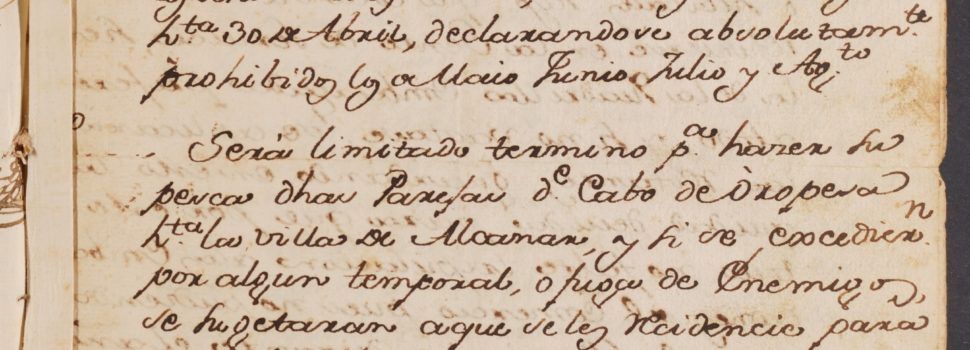 hta 30 de Abril, declarandose absolutamte
prohibidos los de Maio Junio Julio y Agto
Será limitado termino pa hazer su
pesca dhas Parejas de Cabo de Oropesa
hta la villa de Alcanar, y si se excediern
por algun temporal, ò fuga de Enemigos
se sugetaran a que se les Residencie para